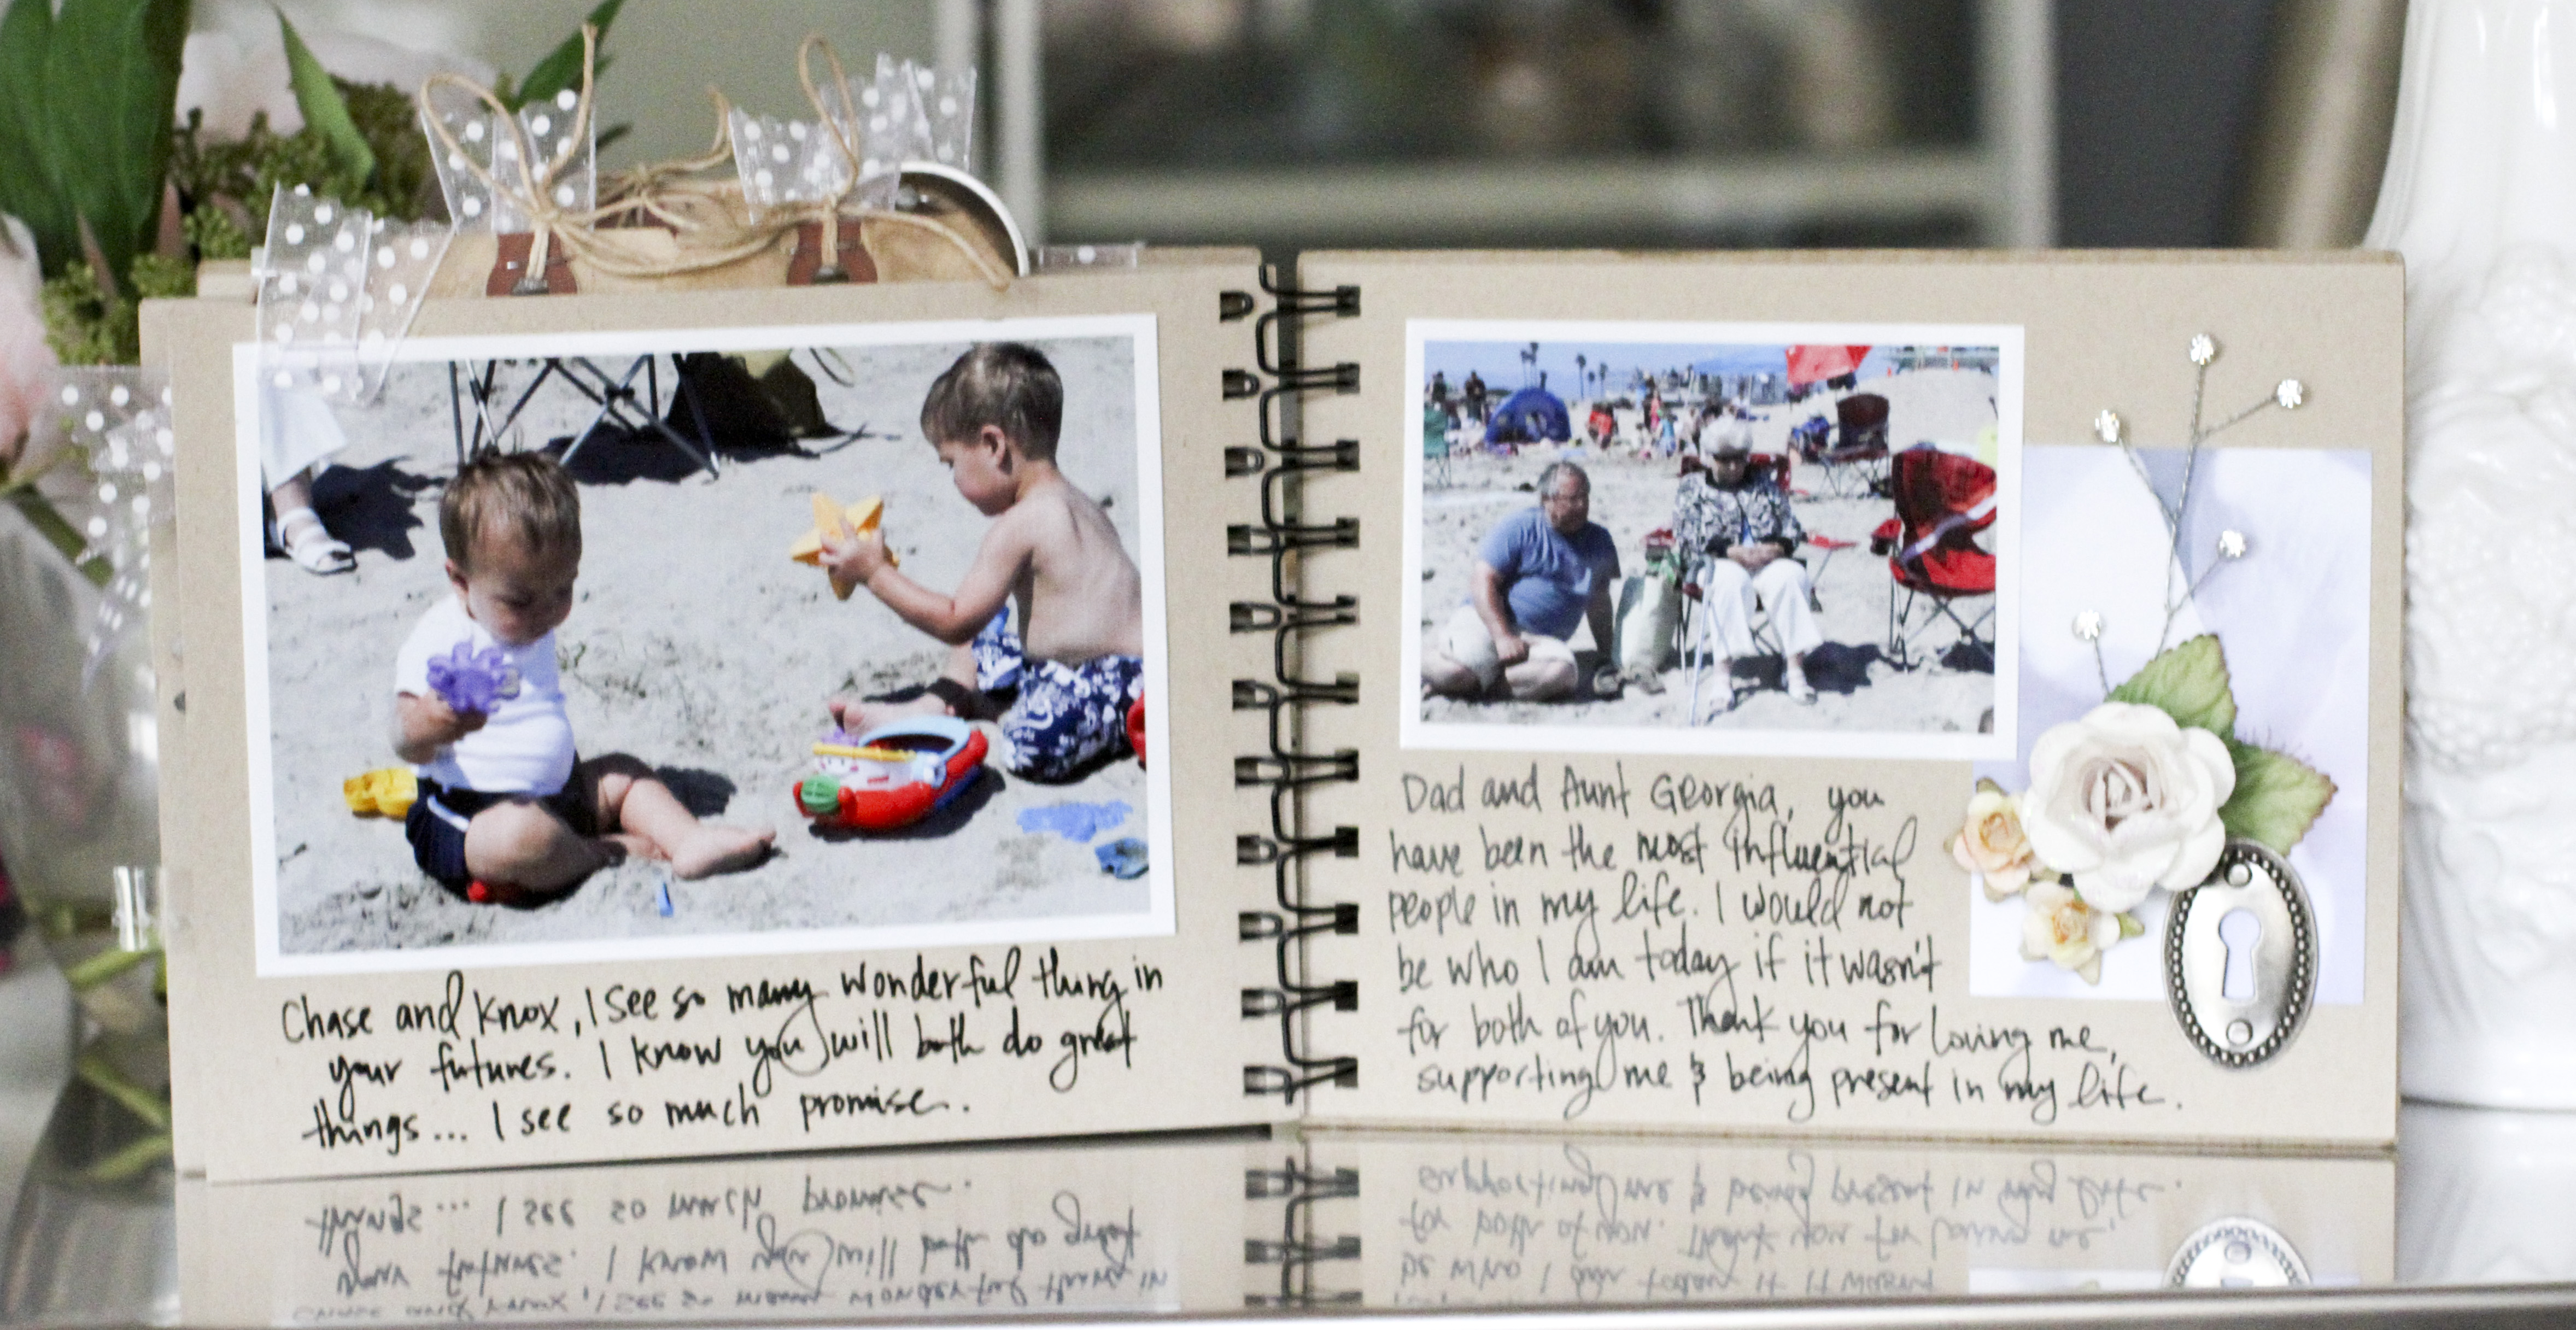 Chase and Knox, I see so many wonderful thing in
your futures. I know you will both do great
things... I see so much promise.
Dad and Aunt Georgia, you
have been the most influential
people in my life. I would not
be who I am today if it wasn't
for both of you. Thank you for loving me,
supporting me & being present in my life.